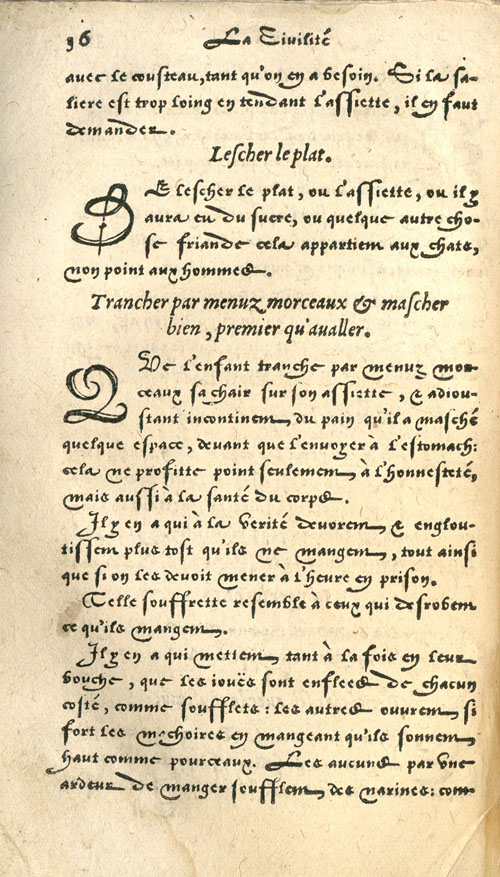 36 La Civilité
avec le cousteau, tant qu'on en a besoin. Si la sa-
liere est trop loing en tendant l'assiette, il en faut
demander.
Lescher le plat.
DE lescher le plat, ou l'assiette, ou il y
aura eu du sucre, ou quelque autre cho-
se friande cela appartient aux chats,
non point aux hommes.
Trancher par menuz morceaux & mascher
bien, premier qu'avaller.
QVe l'enfant tranche par menuz mor-
ceaux sa chair sur son assiette, & adiou-
stant incontinent du pain qu'il a masché
quelque espace, devant que l'envoyer à l'estomach:
cela ne profitte point seulement à l'honnesteté,
mais aussi à la santé du corps.
Il y en a qui à la verité devorent & englou-
tissent plus tost qu'ils ne mangent, tout ainsi
que si on les devoit mener à l'heure en prison.
Telle souffrette resemble à ceux qui desrobent
ce qu'ils mangent.
Il y en a qui mettent tant à la fois en leur
bouche, que les iouës sont enflees de chacun
costé, comme soufflets: les autres ouvrent si
fort les machoires en mangeant qu'ils sonnent
haut comme pourceaux. Les aucuns par vne
ardeur de manger soufflent des narines: com-